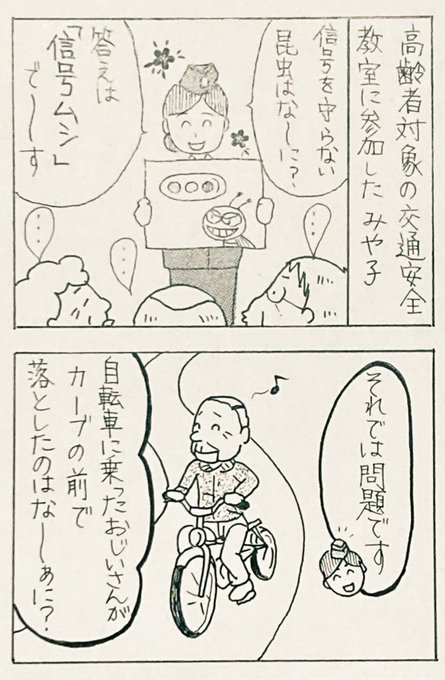 高齢者対象の交通安全
教室に参加したみや子
信号を守らない
昆虫はな〜に?
答えは
「信号ムシ」
で〜す
・・・
・・・
・・・
それでは問題です
自転車に乗ったおじいさんが
カーブの前で
落としたのはな〜ぁに?